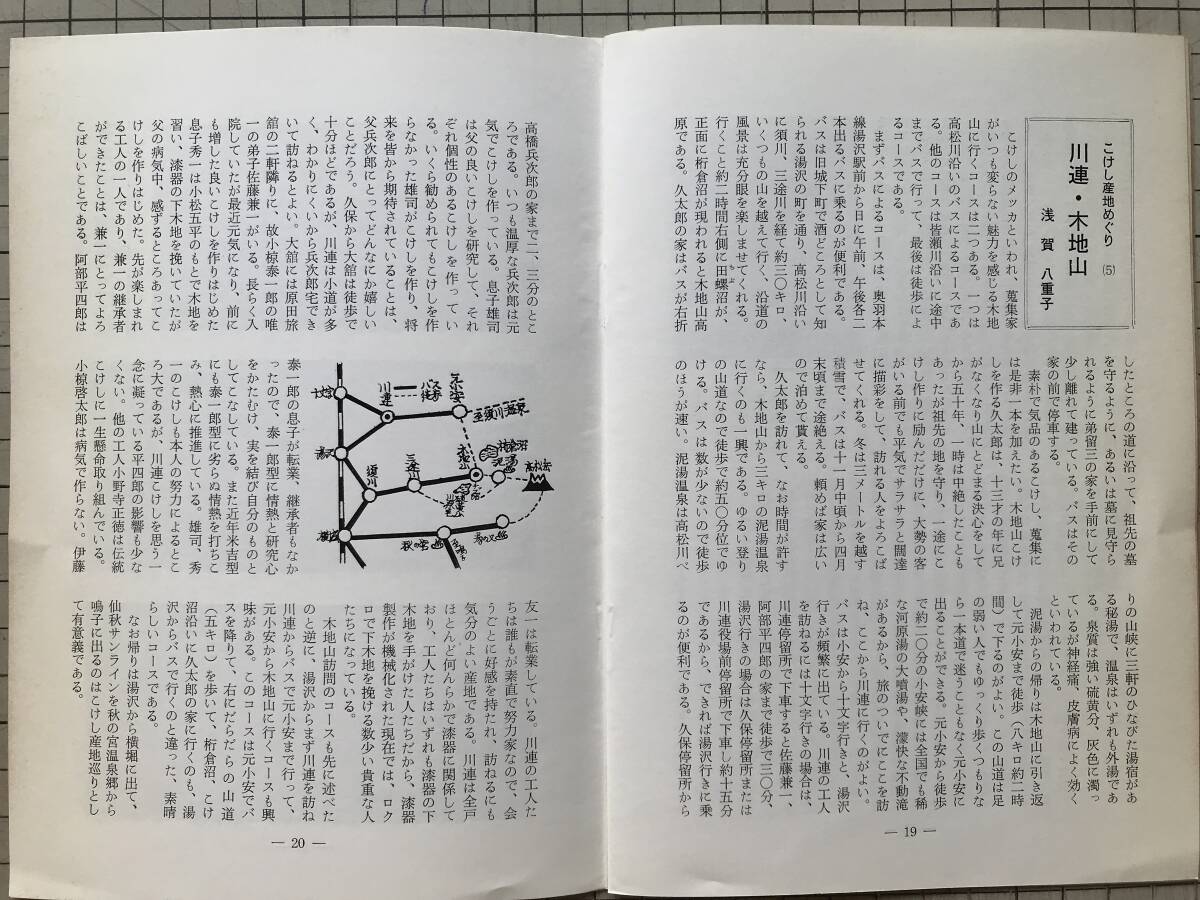 こけし産地めぐり (5)
川連・木地山
浅賀八重子
こけしのメッカといわれ、蒐集家
がいつも変らない魅力を感じる木地
山に行くコースは二つある。一つは
高松川沿いのバスによるコースであ
る。他のコースは皆瀬川沿いに途中
までバスで行って、最後は徒歩によ
るコースである。
まずバスによるコースは、奥羽本
線湯沢駅前から日に午前、午後各二
本出るバスに乗るのが便利である。
バスは旧城下町で酒どころとして知
られる湯沢の町を通り、高松川沿い
に須川、三途川を経て約三〇キロ、
いくつもの山を越えて行く、沿道の
風景は充分眼を楽しませてくれる。
行くこと約二時間右側に田螺沼が、
正面に桁倉沼が現われると木地山高
原である。久太郎の家はバスが右折
したところの道に沿って、祖先の墓
を守るように、あるいは墓に見守ら
れるように弟留三の家を手前にして
少し離れて建っている。バスはその
家の前で停車する。
素朴で気品のあるこけし、蒐集に
は是非一本を加えたい。木地山こけ
しを作る久太郎は、十三才の年に兄
がなくなり山にとどまる決心をして
から五十年、一時は中絶したことも
あったが祖先の地を守り、一途にこ
けし作りに励んだだけに、大勢の客
がいる前でも平気でサラサラと闊達
に描彩をして、訪れる人をよろこば
せてくれる。冬は三メートルを越す
積雪で、バスは十一月中頃から四月
末頃まで途絶える。頼めば家は広い
ので泊めて貰える。
久太郎を訪れて、なお時間が許す
なら、木地山から三キロの泥湯温泉
に行くのも一興である。ゆるい登り
の山道なので徒歩で約五〇分位でゆ
ける。バスは数が少ないので徒歩
のほうが速い。泥湯温泉は高松川べ
りの山峡に三軒のひなびた湯宿があ
る秘湯で、温泉はいずれも外湯であ
る。泉質は強い硫黄分、灰色に濁っ
ているが神経痛、皮膚病によく効く
といわれている。
泥湯からの帰りは木地山に引き返
して元小安まで徒歩(八キロ約二時
間)で下るのがよい。この山道は足
の弱い人でもゆっくり歩くつもりな
ら一本道で迷うこともなく元小安に
出ることができる。元小安から徒歩
で約二〇分の小安峡には全国でも稀
な河原湯の大噴湯や、濛快な不動滝
があるから、旅のついでにここを訪
ね、ここから川連に行くのがよい。
バスは小安から十文字行きと、湯沢
行きが頻繁に出ている。川連の工人
を訪ねるには十文字行きの場合は、
川連停留所で下車すると佐藤兼一、
阿部平四郎の家まで徒歩で三〇分、
湯沢行きの場合は久保停留所または
川連役場前停留所で下車し約十五分
であるから、できれば湯沢行きに乗
るのが便利である。久保停留所から
— 19 —
高橋兵次郎の家まで二、三分のとこ
ろである。いつも温厚な兵次郎は元
気でこけしを作っている。息子雄司
は父の良いこけしを研究して、それ
ぞれ個性のあるこけしを作ってい
る。いくら勧められてもこけしを作
らなかった雄司がこけしを作り、将
来を皆から期待されていることは、
父兵次郎にとってどんなにか嬉しい
ことだろう。久保から大舘は徒歩で
十分ほどであるが、川連は小道が多
く、わかりにくいから兵次郎宅でき
いて訪ねるとよい。大舘には原田旅
舘の二軒隣りに、故小椋泰一郎の唯
一の弟子佐藤兼一がいる。長らく入
院していたが最近元気になり、前に
も増した良いこけしを作りはじめた
息子秀一は小松五平のもとで木地を
習い、漆器の下木地を挽いていたが
父の病気中、感ずるところあってこ
けしを作りはじめた。先が楽しまれ
る工人の一人であり、兼一の継承者
ができたことは、兼一にとってよろ
こばしいことである。阿部平四郎は
泰一郎の息子が転業、継承者もなか
ったので、泰一郎型に情熱と研究心
をかたむけ、実を結び自分のものと
してこなしている。また近年米吉型
にも泰一郎型に劣らぬ情熱を打ちこ
み、熱心に推進している。雄司、秀
一のこけしも本人の努力によるとこ
ろ大であるが、川連こけしを思う一
念に凝っている平四郎の影響も少な
くない。他の工人小野寺正徳は伝統
こけしに一生懸命取り組んでいる。
小椋啓太郎は病気で作らない。伊藤
友一は転業している。川連の工人た
ちは誰もが素直で努力家なので、会
うごとに好感を持たれ、訪ねるにも
気分のよい産地である。川連は全戸
ほとんど何んらかで漆器に関係して
おり、工人たちはいずれも漆器の下
木地を手がけた人たちだから、漆器
製作が機械化された現在では、ロク
ロで下木地を挽ける数少い貴重な人
たちになっている。
木地山訪問のコースも先に述べた
のと逆に、湯沢からまず川連を訪ね
川連からバスで元小安まで行って、
元小安から木地山に行くコースも興
味がある。このコースは元小安でバ
スを降りて、右にだらだらの山道
(五キロ)を歩いて、桁倉沼、こけ
沼沿いに久太郎の家に行くのも、湯
沢からバスで行くのと違った、素晴
らしいコースである。
なお帰りは湯沢から横堀に出て、
仙秋サンラインを秋の宮温泉郷から
鳴子に出るのはこけし産地巡りとし
て有意義である。
十文字
川連
バス
徒歩
元小安
湯沢
須川
三途川
木地山
桁倉沼
泥湯
高松岳
横堀
秋の宮
— 20 —